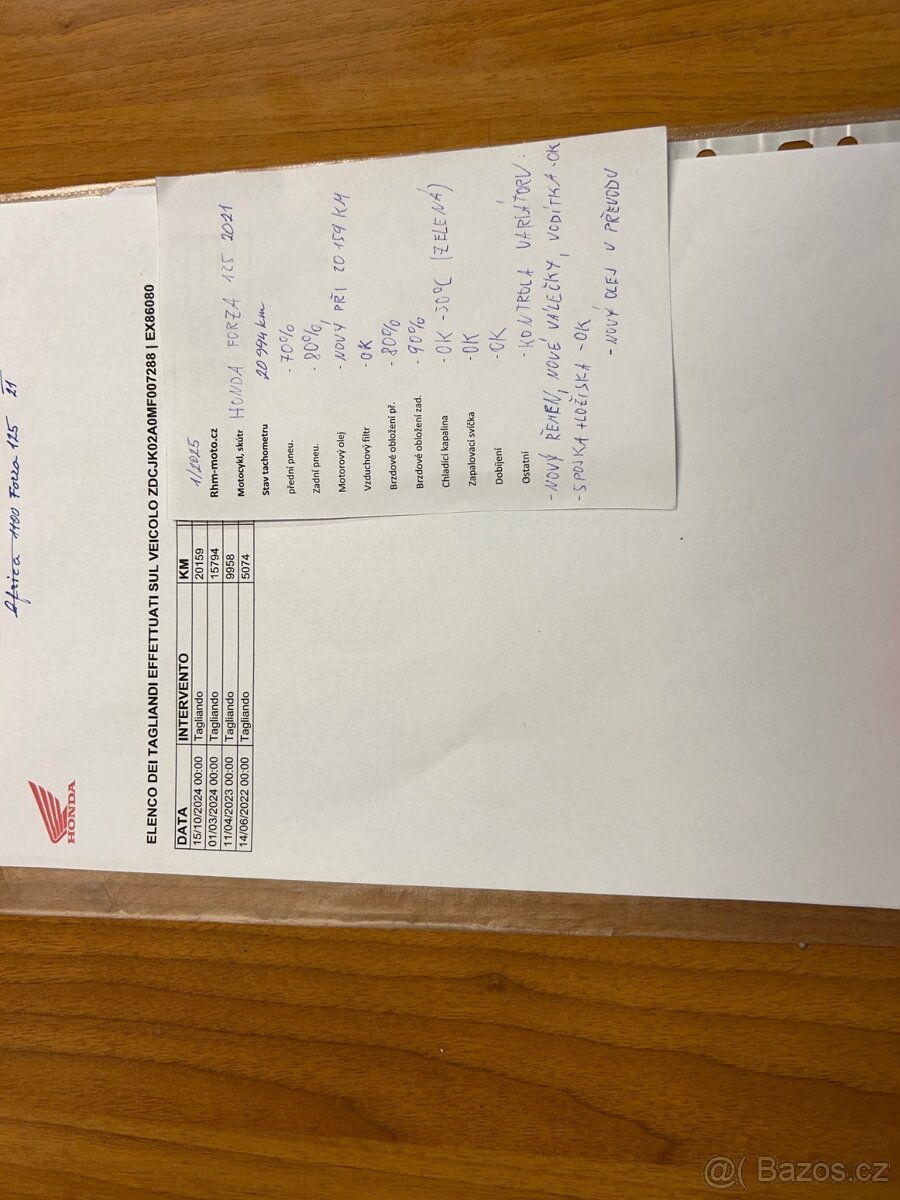 Africa 1100 Forza 125 21
HONDA
ELENCO DEI TAGLIANDI EFFETTUATI SUL VEICOLO ZDCJK02A0MF007288 | EX86080
DATA INTERVENTO KM
15/10/2024 00:00 Tagliando 20159
01/03/2024 00:00 Tagliando 15794
11/04/2023 00:00 Tagliando 9958
14/06/2022 00:00 Tagliando 5074
1/2025
Rhm-moto.cz
Motocykl, skútr HONDA FORZA 125 2021
Stav tachometru 20 994 km
přední pneu. - 70%
Zadní pneu. - 80%
Motorový olej - NOVÝ PŘI 20 159 KM
Vzduchový filtr - OK
Brzdové obložení př. - 80%
Brzdové obložení zad. - 90%
Chladící kapalina - OK -30°C (ZELENÁ)
Zapalovací svíčka - OK
Dobíjení - OK
Ostatní - KONTROLA VARIÁTORU:
- NOVÝ ŘEMEN, NOVÉ VÁLEČKY, VODÍTKA - OK
- SPOJKA + LOŽISKA - OK
- NOVÝ OLEJ V PŘEVODU
@( Bazoš.cz